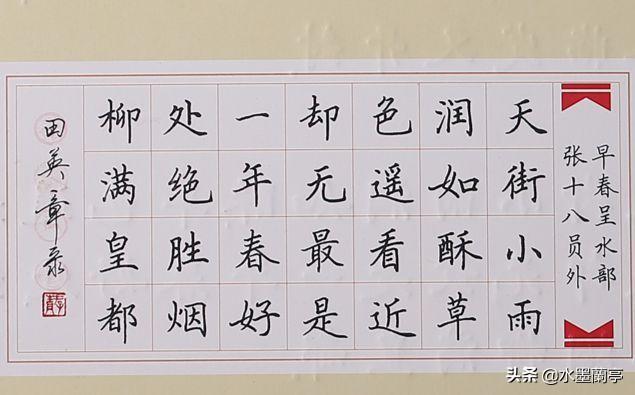 早春呈水部
张十八员外
天街小雨
润如酥草
色遥看近
却无最是
一年春好
处绝胜烟
柳满皇都
田英章录
头条@水墨蘭亭